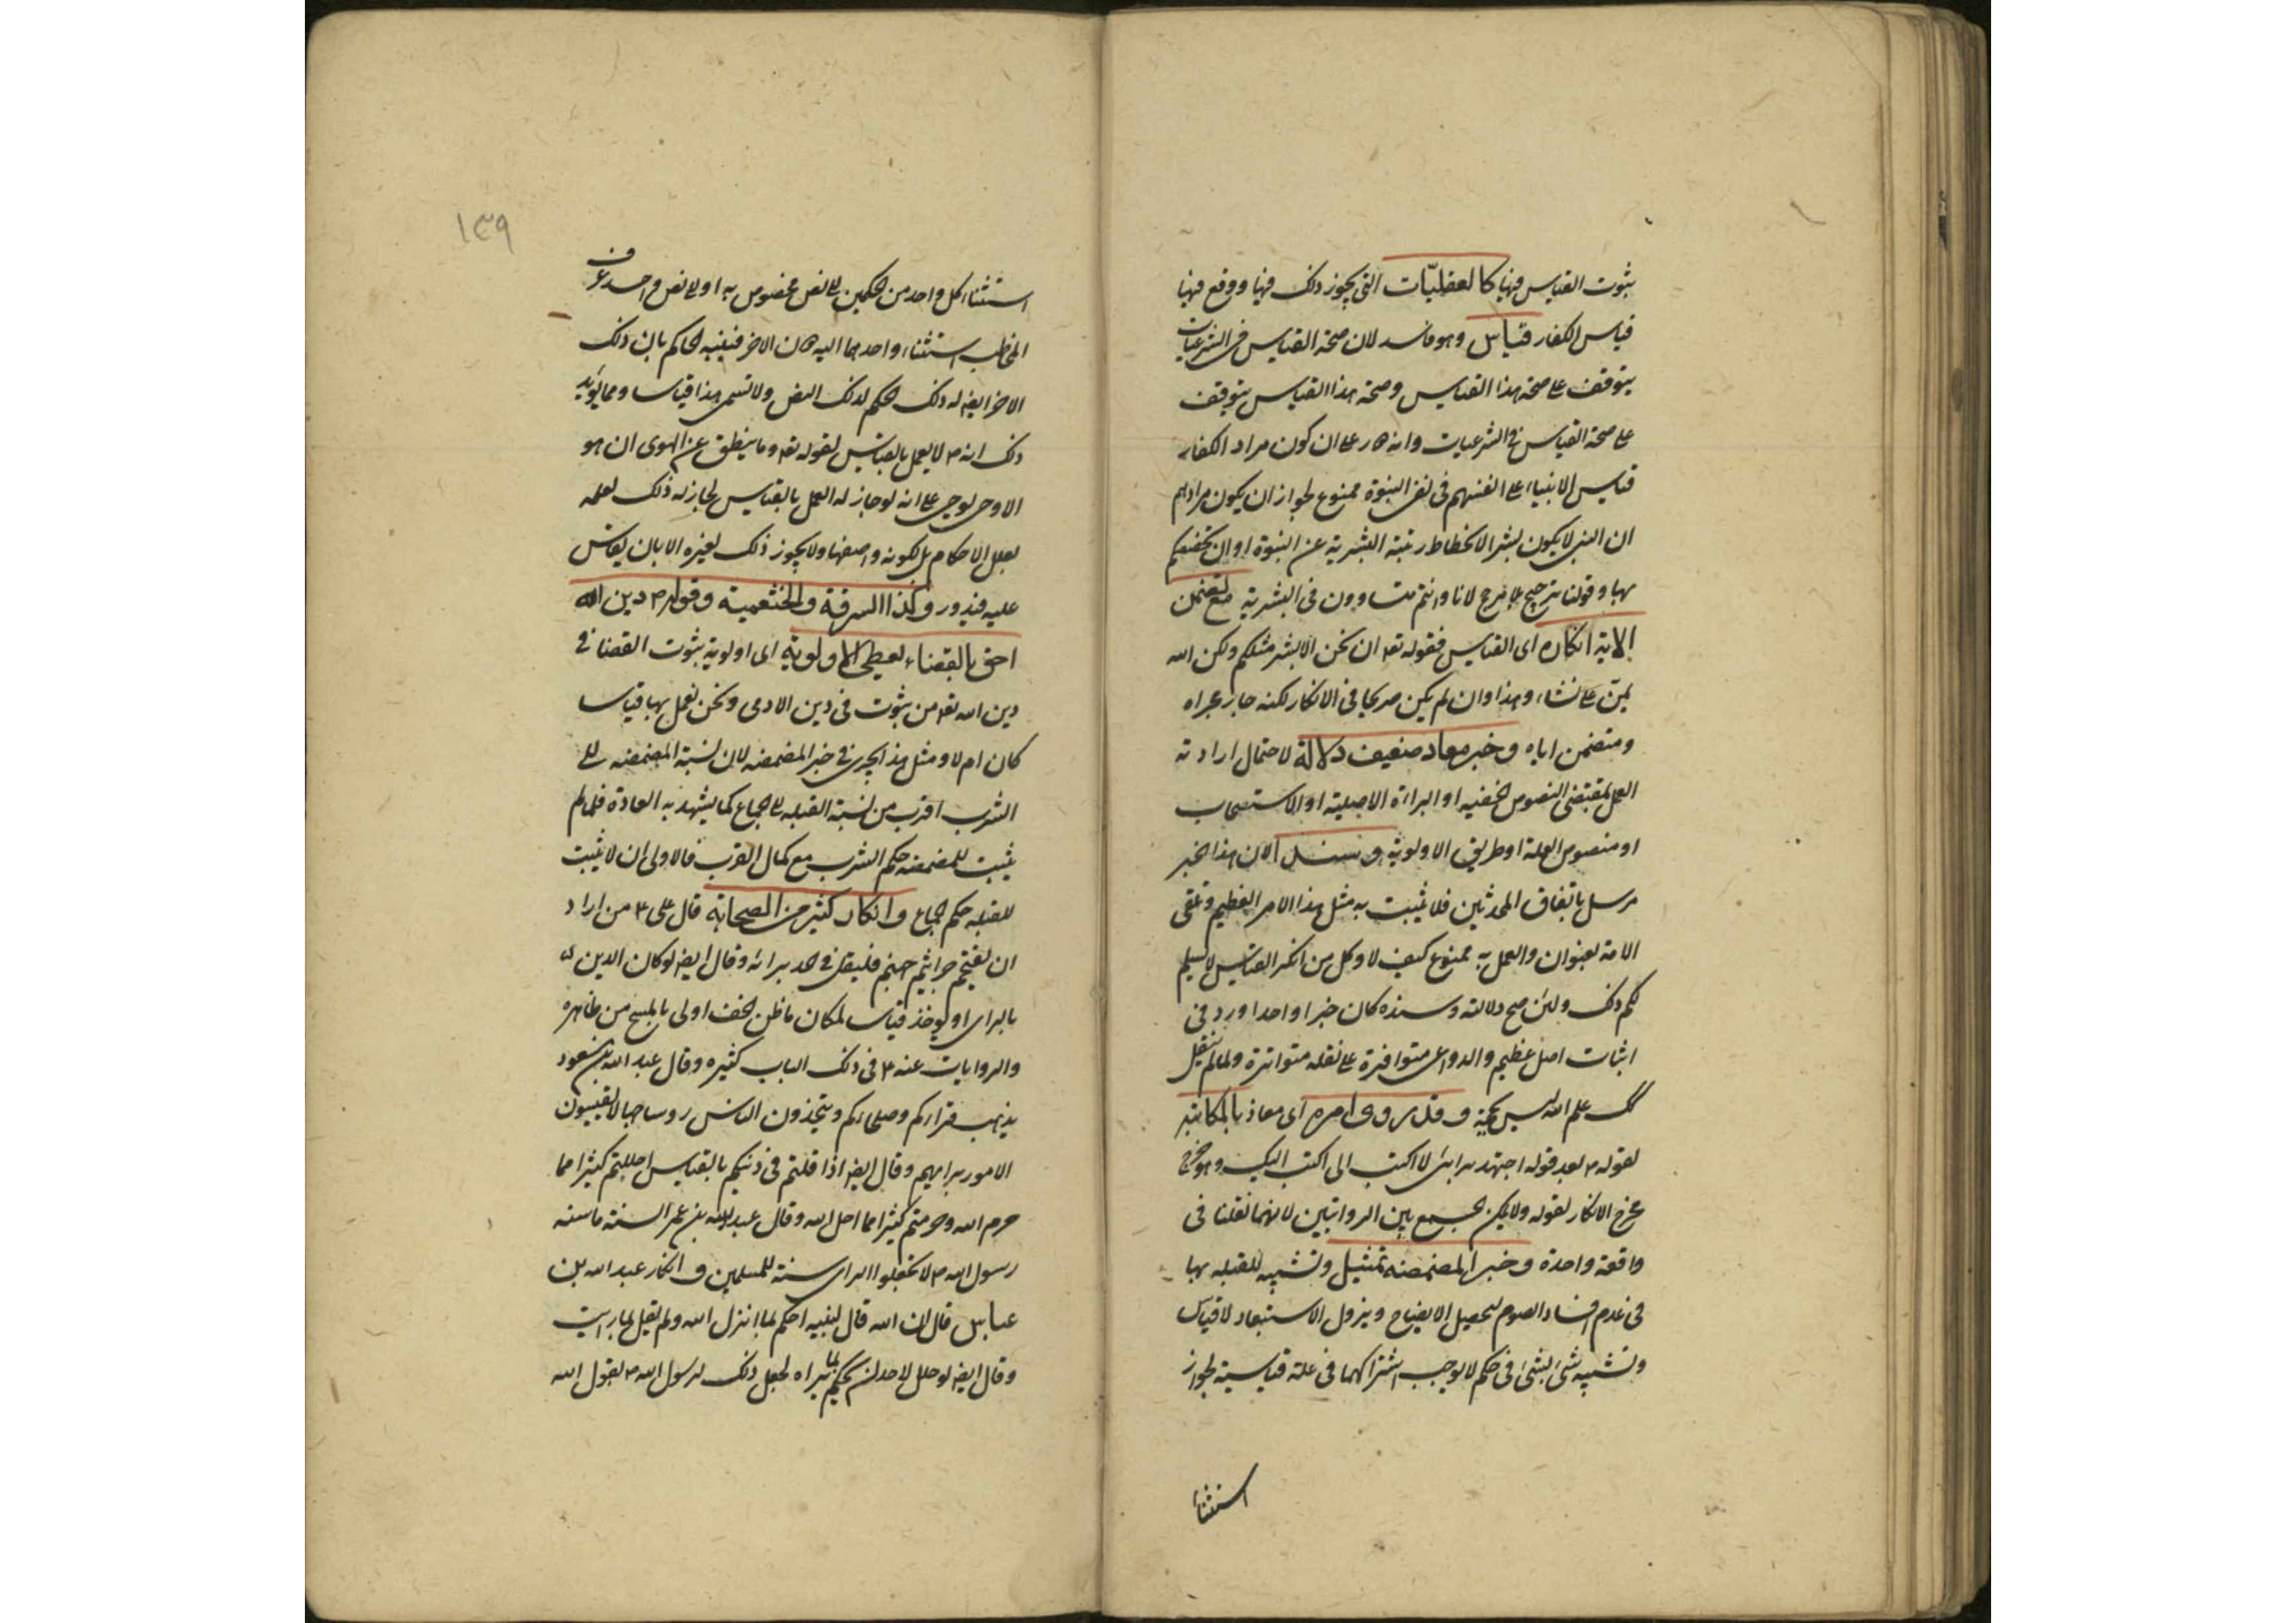 بثبوت القياس فيها كالعقليّات التى يجوز ذلك فيها ووقع فيها
قياس الكفار قياس وهو فاسد لان صحة القياس فى الشرعيات
يتوقف على صحة هذا القياس وصحة هذا القياس يتوقف
على صحة القياس فى الشرعيات وانه على ان كون مراد الكفار
قياس الانبياء على انفسهم فى نفى النبوة ممنوع لجواز ان يكون مرادهم
ان النبى لا يكون بشرا لانحطاط رتبة البشرية عن النبوة او ان تخصيصكم
بها وقولنا ترجيح بلا مرجح لانا وانتم متساوون فى البشرية مع تضمن
الاية انكاره اى القياس فقوله تعه ان نحن الا بشر مثلكم ولكن الله
يمن على نشاء وهذا وان لم يكن صريحا فى الانكار لكنه جار مجراه
ومتضمن اياه وخبر معاد ضعيف دلالة لاحتمال ارادته
العمل بمقتضى النصوص الخفيه او البراءة الاصلية او الاستصحاب
او منصوص العلة او طريق الاولوية وسندا لان هذا الخبر
مرسل باتفاق المحدثين فلا يثبت به مثل هذا الامر العظيم وتلقى
الامة بعنوان والعمل به ممنوع كيف لا وكل من انكر القياس لا يسلم
لكم ذلك ولئن صح دلالته وسنده كان خبرا واحدا ورد فى
اثبات اصل عظيم والدواعى متوافرة على نقله متواترة ولما لم ينقل
علم انه ليس بحجة وقد روى امره اى معاذ بالمكاتبه
لقوله م بعد قوله اجتهد برايى لا اكتب الى اكتب اليك وهو خرج
مخرج الانكار لقوله ولا يمكن الجمع بين الروايتين لانهما نقلتا فى
واقعة واحدة وخبر المضمضه تمثيل وتشبيه للقبله بها
فى عدم افساد الصوم لتحصيل الايضاح ويزول الاستبعاد لا قياس
وتشبيه شئ بشئ فى حكم لا يوجب اشتراكهما فى علة قياسية لجواز
استثنا
١٣٩
استثناء كل واحد من الحكمين الى نص مخصوص به او الى نص واحد عرف
المخاطب استثناء واحدهما اليه الاخر فينبه الحاكم بان ذلك
الاخر ايضا له ذلك الحكم لذلك النص ولا تسمى هذا قياسا ومما يؤيد
ذلك انه م لا يعمل بالقياس لقوله تعه وما ينطق عن الهوى ان هو
الا وحى يوحى على انه لو جاز له العمل بالقياس لجاز له ذلك لعلمه
بعلل الاحكام بل لكونه واضعها ولا يجوز ذلك لغيره الا بان يقاس
عليه فيدور وكذا السرقة والخثعمية وقوله م دين الله
احق بالقضاء يعطى الاولوية اى اولوية بثبوت القضا فى
دين الله تعه من ثبوت فى دين الادمى ونحن نعمل بها قياسا
كان ام لا ومثل هذا يجرى فى خبر المضمضه لان نسبة المضمضه الى
الشرب اقرب من نسبة القبله الى الجماع كما يشهد به العادة فلما لم
يثبت للمضمضه حكم الشرب مع كمال القرب فالاولى ان لا يثبت
للقبله حكم الجماع وانكار كثير من الصحابة قال على ع من اراد
ان يقتحم جراثيم جهنم فليقل فى الجد برائه وقال ايضا لو كان الدين
بالراى او يوخذ قياسا لكان باطن الخف اولى بالمسح من ظاهره
والروايات عنه ع فى ذلك الباب كثيره وقال عبد الله بن مسعود
يذهب قراءكم وصلحاءكم ويتخذون الناس روسا جهالا يقيسون
الامور برايهم وقال ايضا اذا قلتم فى دينكم بالقياس احللتم كثيرا مما
حرم الله وحرمتم كثيرا مما احل الله وقال عبد الله بن عمر السنة ما سنه
رسول الله م لا تجعلوا الراى سنة للمسلمين وانكار عبد الله بن
عباس قال ان الله قال لنبيه احكم بما انزل الله ولم يقل بما رايت
وقال ايضا لو حلل لاحد ان يحكم بما يراه لجعل ذلك لرسول الله م لقول الله